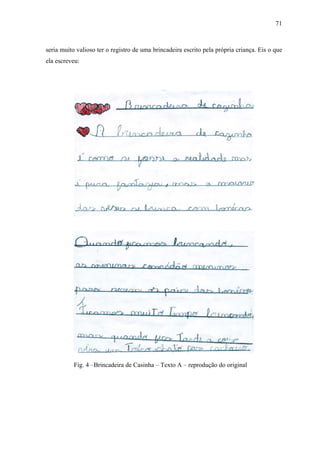 71
seria muito valioso ter o registro de uma brincadeira escrito pela própria criança. Eis o que
ela escreveu:
Brincadeira de cazinha
A brincadeira de cazinha
é como se fosse a realidade mas
é pura fantazia, mas a maioria
das vezes se brinca com bonecas
Quando ficamos brincando,
as meninas convidão meninos
para serem os pais das bonecas
Ficamos muito tempo brincando,
mais quando fica Tarde a
Fig. 4 –Brincadeira de Casinha – Texto A – reprodução do original